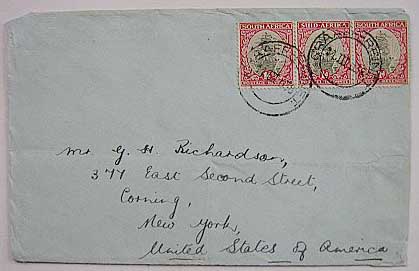 SOUTH AFRICA SUID-AFRIKA SOUTH AFRICA
Mr G. H. Richardson,
377 East Second Street,
Corning,
New York,
United States of America